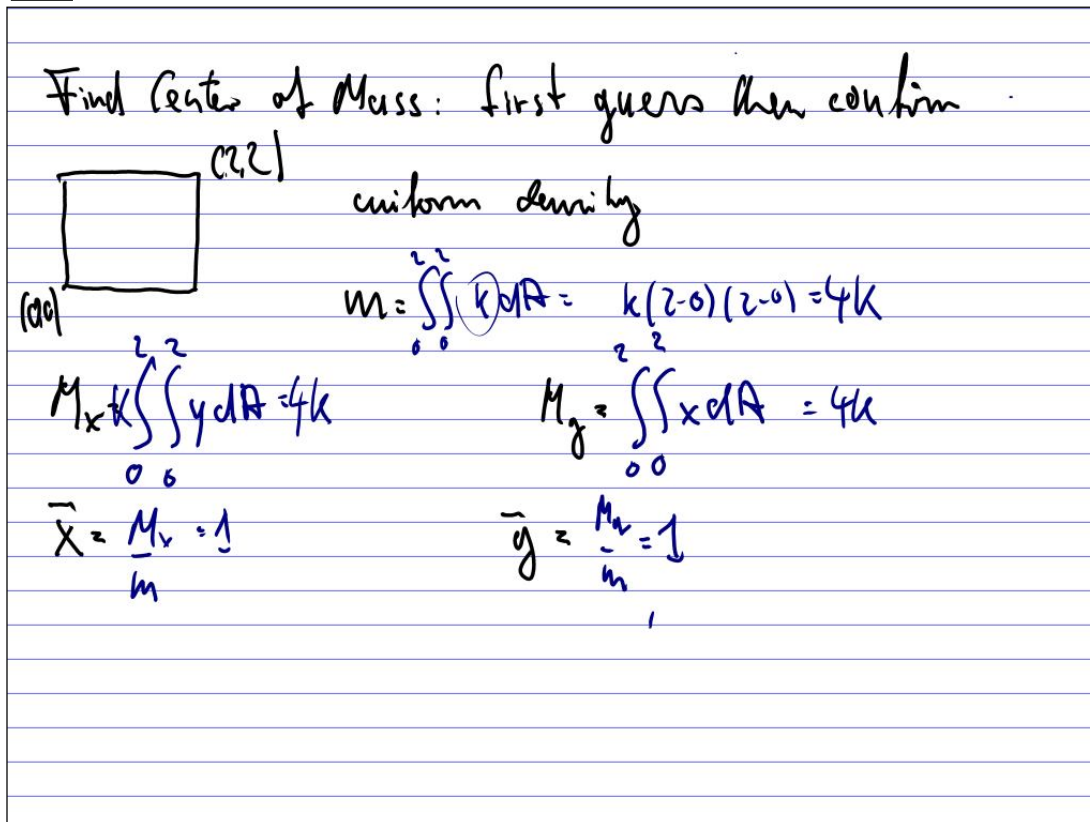 Find Center of Mass: first guess then confirm
(2,2)
uniform density
(0,0)
m = ∫₀² ∫₀² k dA = k(2-0)(2-0) = 4k
Mₓ = k ∫₀² ∫₀² y dA = 4k
M_y = ∫₀² ∫₀² x dA = 4k
x̄ = Mₓ/m = 1
ȳ = M_y/m = 1